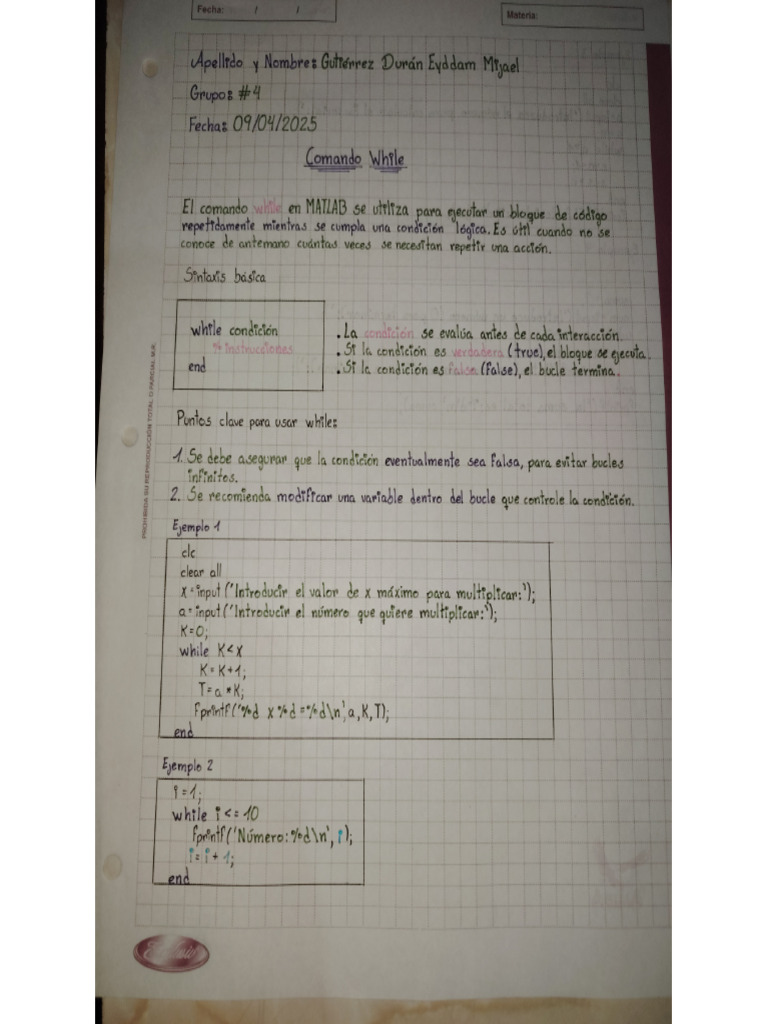 Fecha: / /
Materia:
Apellido y Nombre: Gutiérrez Durán Eyddam Mijael
Grupo: #4
Fecha: 09/04/2025
Comando While
El comando while en MATLAB se utiliza para ejecutar un bloque de código
repetidamente mientras se cumpla una condición lógica. Es útil cuando no se
conoce de antemano cuántas veces se necesitan repetir una acción.
Sintaxis básica
while condición
% instrucciones
end
. La condición se evalúa antes de cada interacción.
. Si la condición es verdadera (true), el bloque se ejecuta.
. Si la condición es falsa (false), el bucle termina.
Puntos clave para usar while:
1. Se debe asegurar que la condición eventualmente sea falsa, para evitar bucles
infinitos.
2. Se recomienda modificar una variable dentro del bucle que controle la condición.
Ejemplo 1
clc
clear all
x=input('Introducir el valor de x máximo para multiplicar:');
a=input('Introducir el número que quiere multiplicar:');
K=0;
while K<x
K=K+1;
T=a*K;
fprintf('%d x %d=%d\n',a,K,T);
end
Ejemplo 2
i=1;
while i<=10
fprintf('Número:%d\n',i);
i=i+1;
end
PROHIBIDA SU REPRODUCCIÓN TOTAL O PARCIAL M.R.